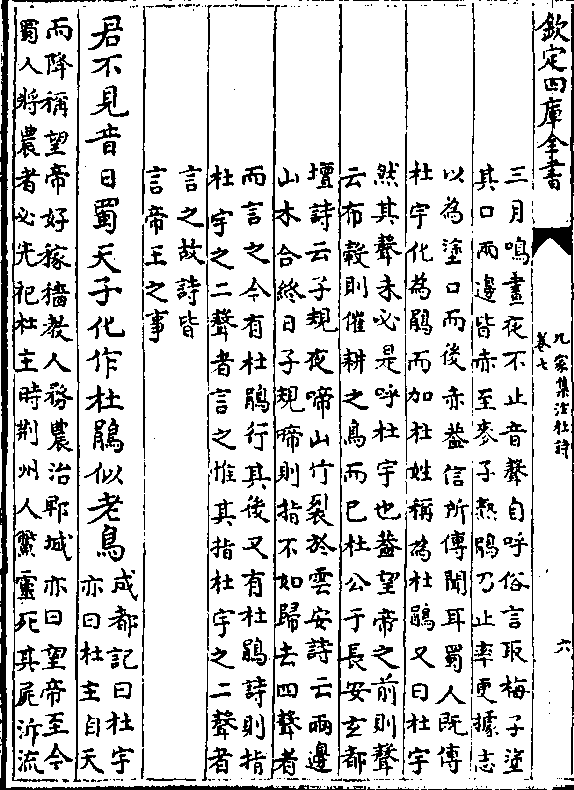 欽定四庫全書
九家集注杜詩
卷七
六
三月鳴晝夜不止音聲自呼俗言取梅子塗
其口兩邊皆赤至麥子熟鵑乃止率更據志
以為塗口而後赤葢信所傳聞耳蜀人既傳
杜宇化為鵑而加杜姓稱為杜鵑又曰杜宇
然其聲未必是呼杜宇也葢望帝之前則聲
云布穀則催耕之鳥而已杜公于長安玄都
壇詩云子規夜啼山竹裂於雲安詩云兩邊
山木合終日子規啼則指不如歸去四聲者
而言之今有杜鵑行其後又有杜鵑詩則指
杜宇之二聲者言之惟其指杜宇之二聲者
言之故詩皆
言帝王之事
君不見昔日蜀天子化作杜鵑似老烏
成都記曰杜宇
亦曰杜主自天
而降稱望帝好稼穡教人務農治郫城亦曰望帝至今
蜀人將農者必先祀杜主時荆州人鱉靈死其屍泝流